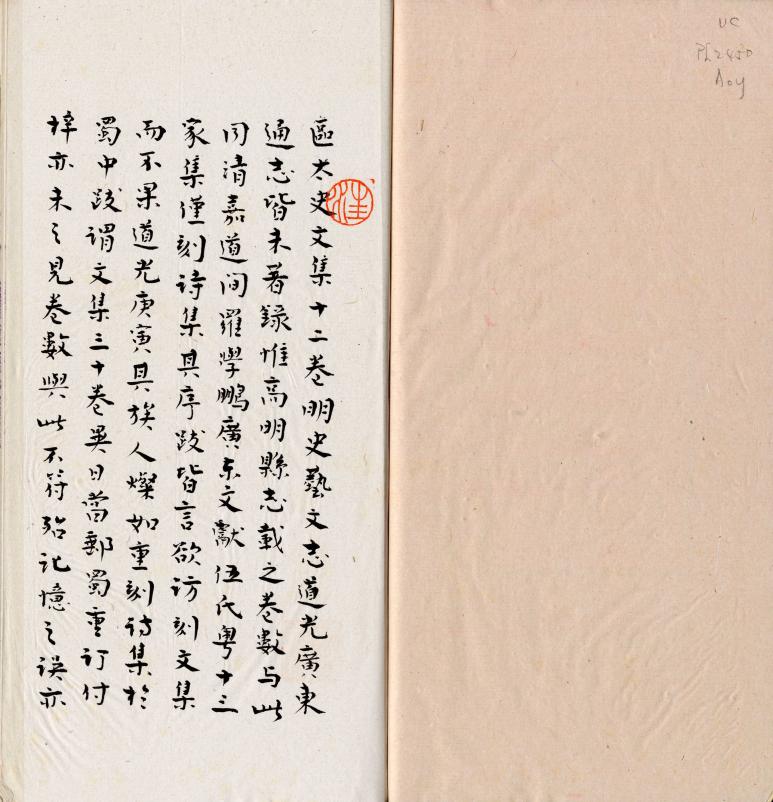 UC
PL2450
Aoy
區太史文集十二卷明史藝文志道光廣東
通志皆未著錄惟高明縣志載之卷數与此
同清嘉道间羅學鵬廣东文獻伍氏粤十三
家集僅刻詩集具序跋皆言欲訪刻文集
而不果道光庚寅具族人燦如重刻詩集於
蜀中跋謂文集三十卷異日當郵蜀重订付
梓亦未之見卷數與此不符殆記憶之误亦